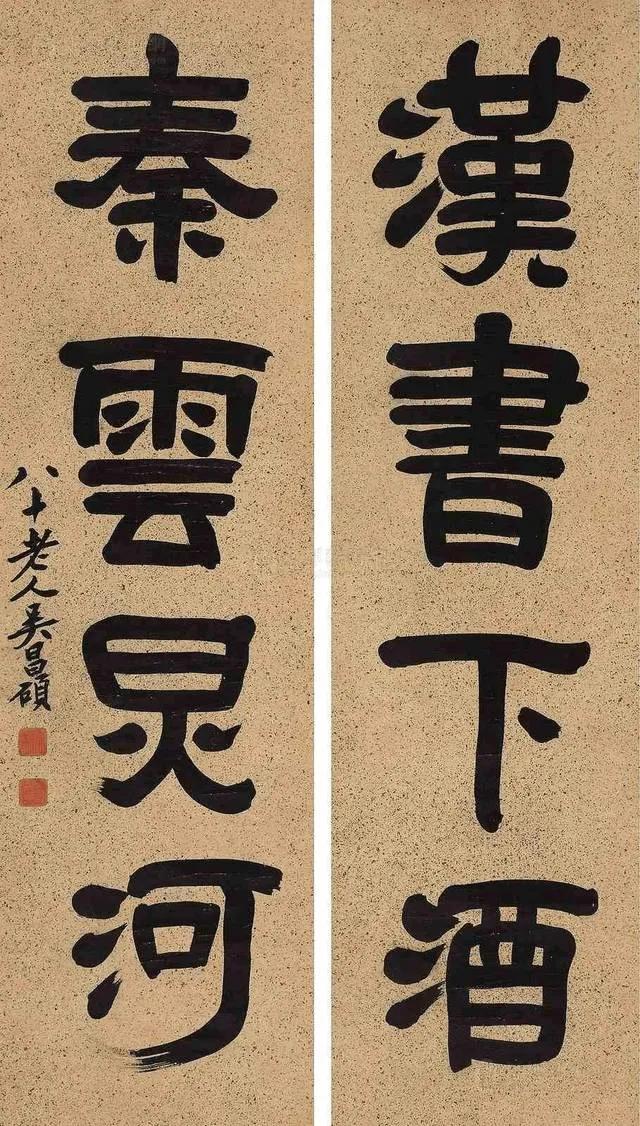 漢書下酒
秦雲炅河
八十老人吳昌碩